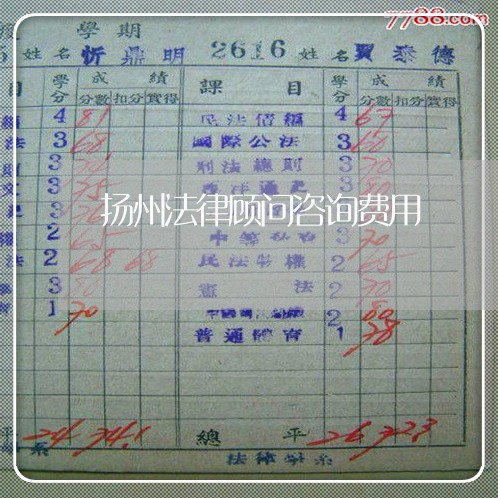 7788.com
學期
5 姓名 忻鼎明 2616 姓名 賈泰德
目 學分 成績 分數 扣分 實得 課目 學分 成績 分數 扣分 實得
4 81 民法債編 4 67
法 3 68 國際公法 3 60
3 刑法總則 3 70
3 75 西洋通史 3 80
扬州法律顾问咨询费用
2 65 3 70
法 2 68 68 民法物權 2 65
3 80 憲法 2 70
1 70 2 80
普通體育 1 78
平 24 74.1 總平 26 72.3
系 法律學系